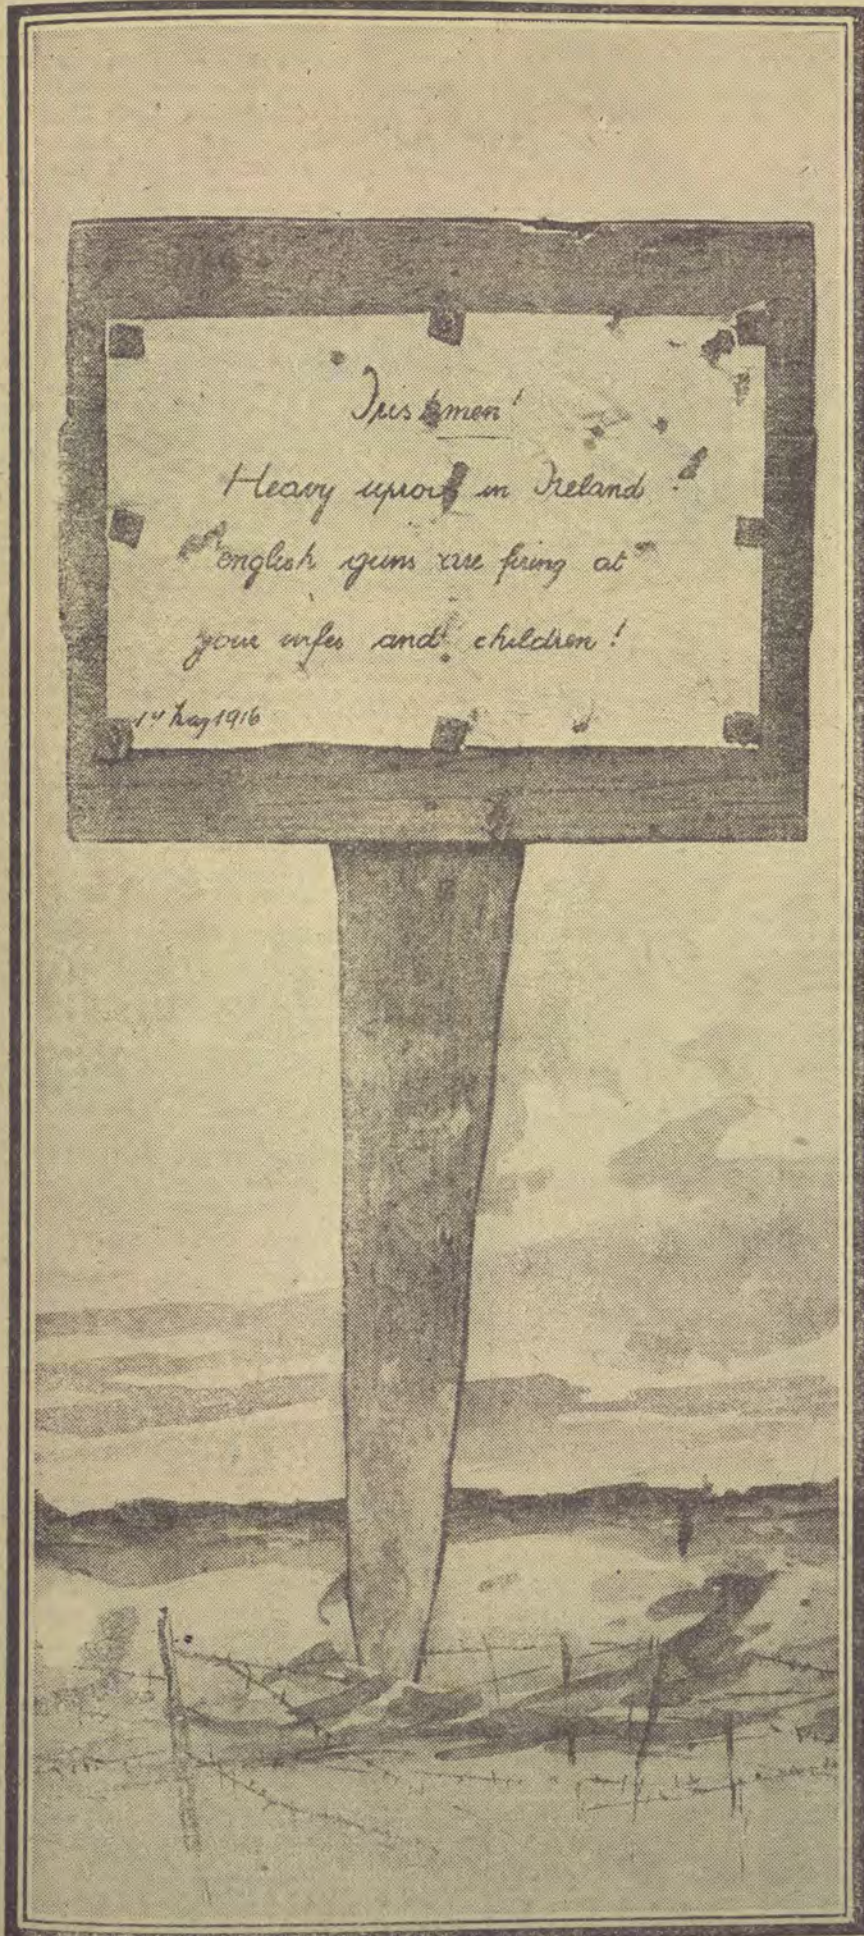 Irishmen!
Heavy uproar in Ireland!
english guns are firing at
your wifes and children!
1st May 1916